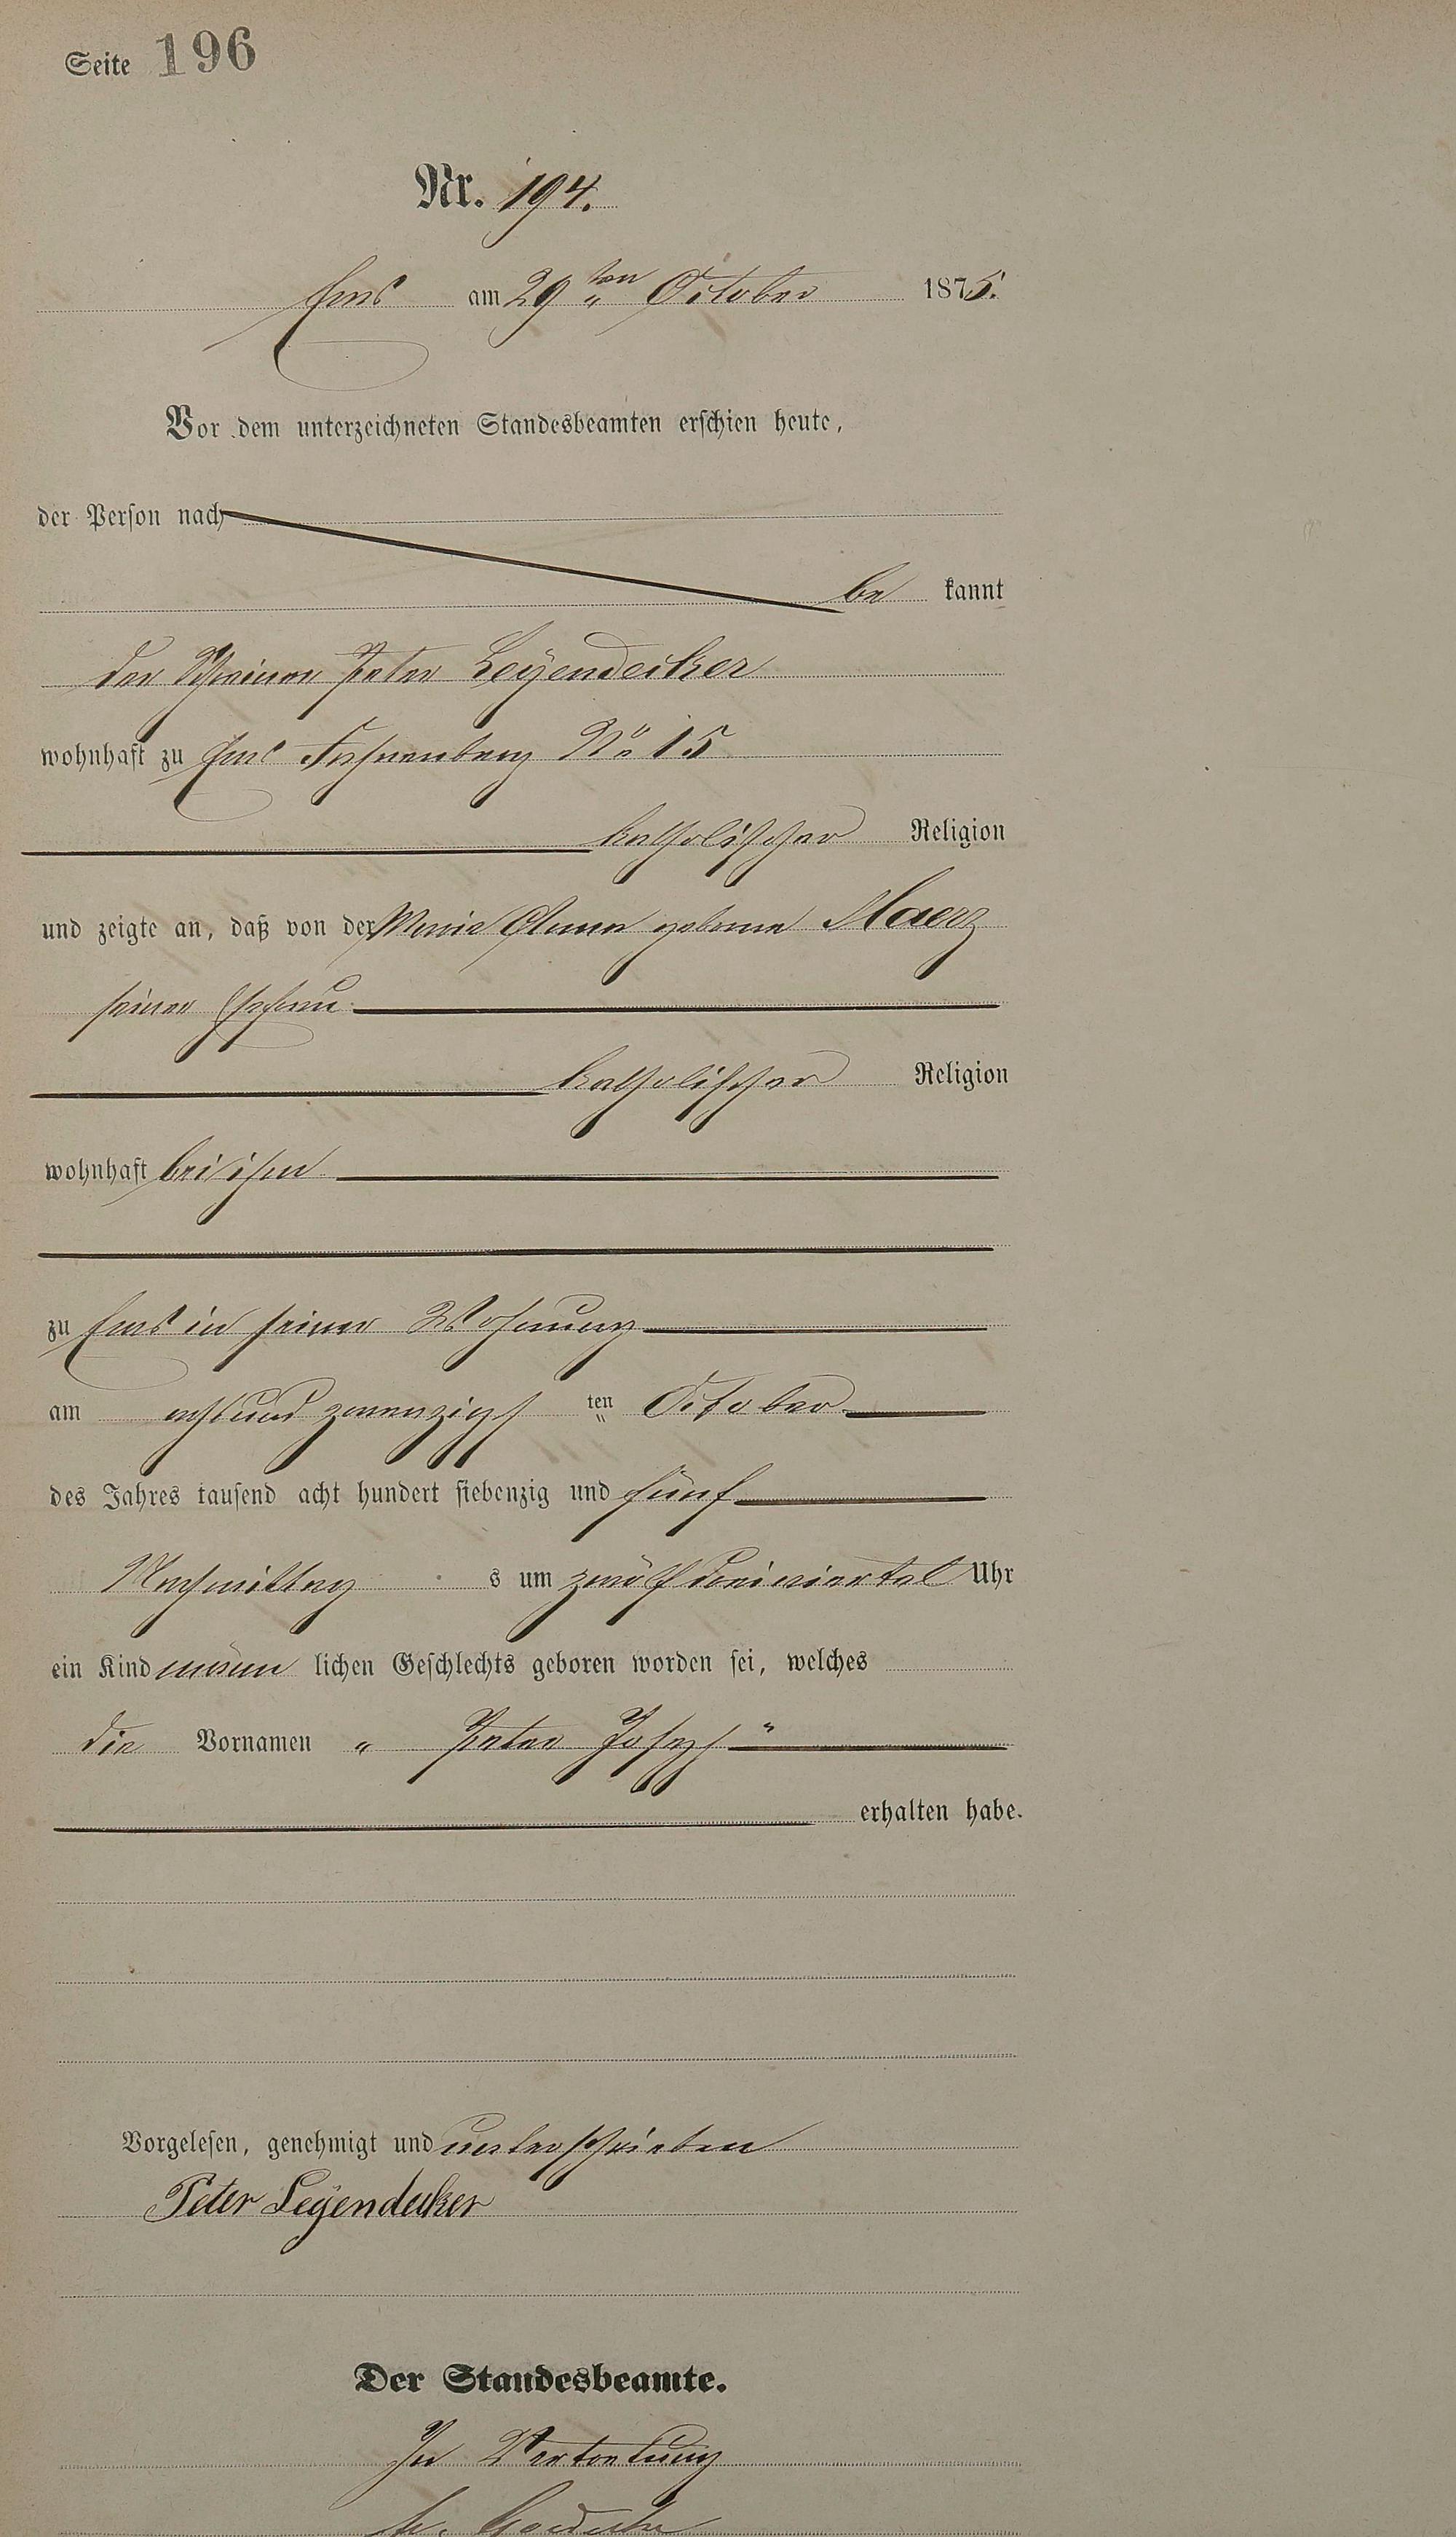 Seite 196
Nr. 194.
Ems am 29ten October 1875.
Vor dem unterzeichneten Standesbeamten erschien heute,
der Person nach
be kannt
der Schreiner Peter Leÿendecker
wohnhaft zu Ems No 15
katholischer Religion
und zeigte an, daß von der Maria Anna geborne Maerz
seiner Ehefrau
katholischer Religion
wohnhaft bei ihm
zu Ems in seiner Wohnung
am acht und zwanzigsten October
des Jahres tausend acht hundert siebenzig und fünf
Nachmittags um zwölf dreiviertel Uhr
ein Kind männlichen Geschlechts geboren worden sei, welches
die Vornamen „ Peter Joseph "
erhalten habe.
Vorgelesen, genehmigt und unterschrieben
Peter Leÿendecker
Der Standesbeamte.
In Vertretung